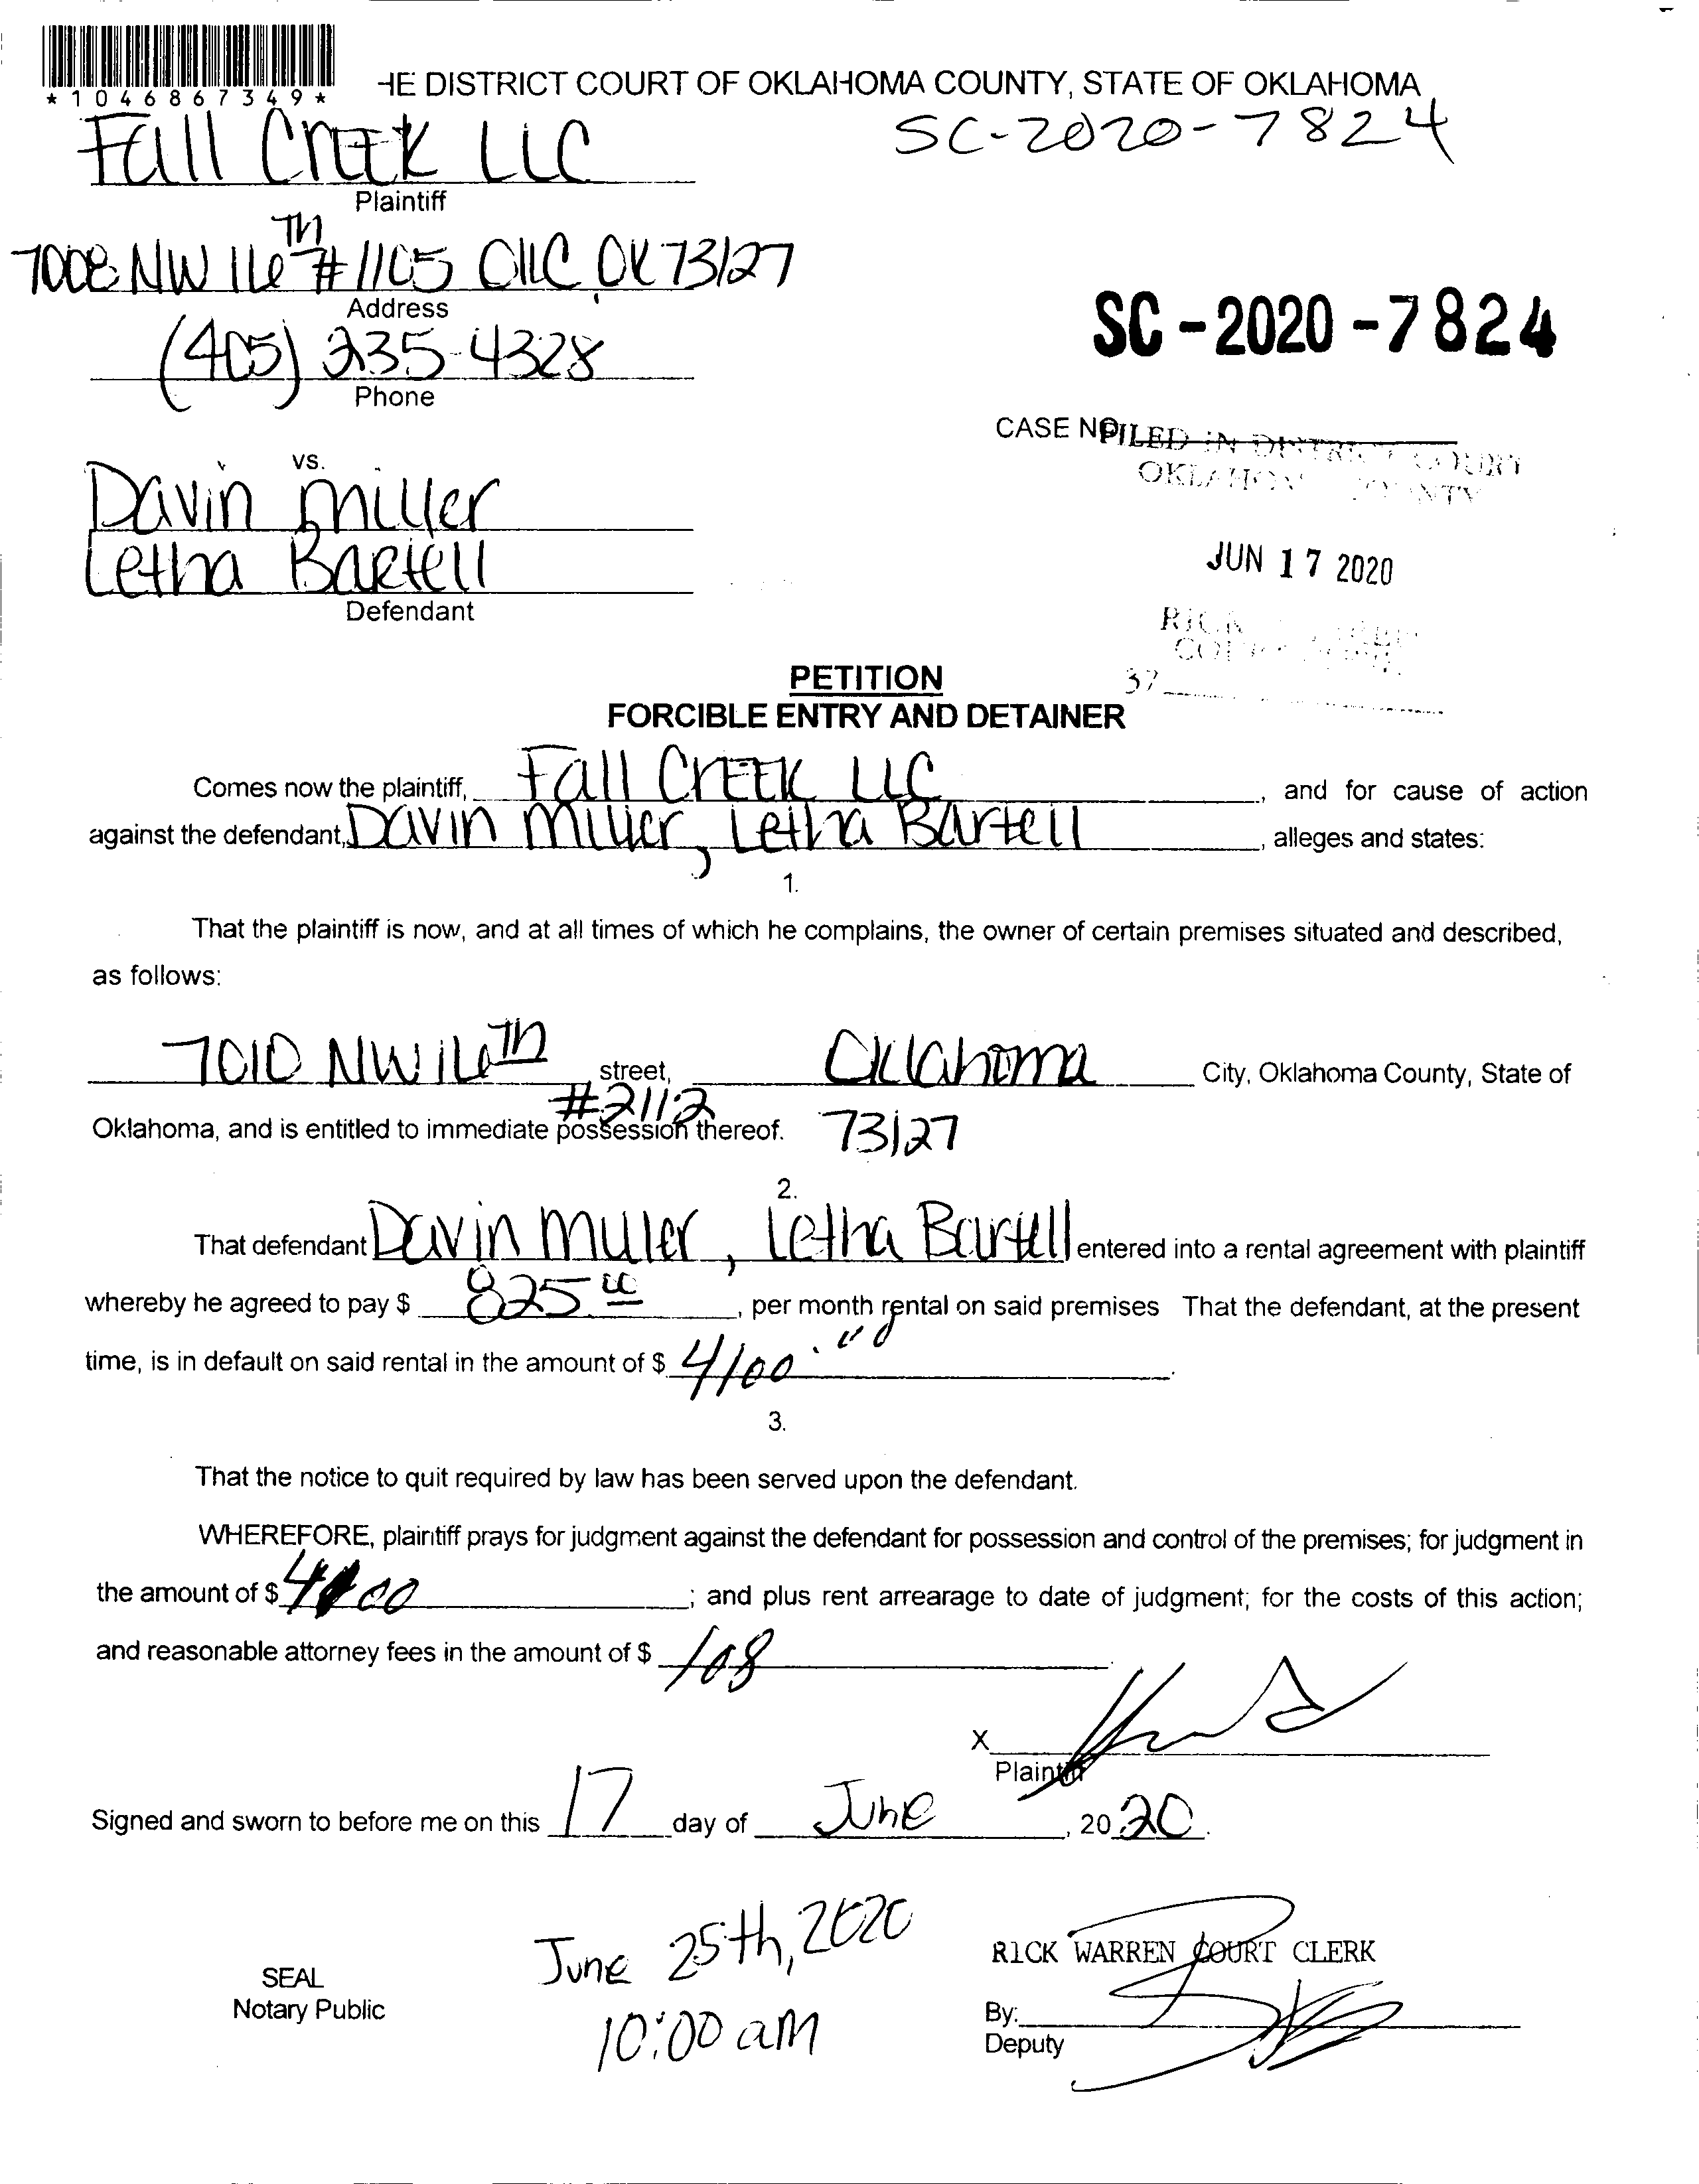 *1046867349*
HE DISTRICT COURT OF OKLAHOMA COUNTY, STATE OF OKLAHOMA
Fall Creek LLC
SC-2020-7824
Plaintiff
7008 NW 16TH #1105 OKC, OK 73127
Address
SC-2020-7824
(405) 235-4328
Phone
CASE NO.
FILED IN DISTRICT COURT
OKLAHOMA COUNTY
vs.
Davin Miller
Letha Bartell
JUN 17 2020
Defendant
RICK
COURT CLERK
37
PETITION
FORCIBLE ENTRY AND DETAINER
Comes now the plaintiff, Fall Creek LLC, and for cause of action
against the defendant, Davin Miller, Letha Bartell, alleges and states:
1.
That the plaintiff is now, and at all times of which he complains, the owner of certain premises situated and described,
as follows:
7010 NW 16TH street, Oklahoma City, Oklahoma County, State of
#2112
Oklahoma, and is entitled to immediate possession thereof. 73127
2.
That defendant Davin Miller, Letha Bartell entered into a rental agreement with plaintiff
whereby he agreed to pay $ 825.00, per month rental on said premises That the defendant, at the present
time, is in default on said rental in the amount of $ 4100.00.
3.
That the notice to quit required by law has been served upon the defendant.
WHEREFORE, plaintiff prays for judgment against the defendant for possession and control of the premises; for judgment in
the amount of $ 4100; and plus rent arrearage to date of judgment; for the costs of this action;
and reasonable attorney fees in the amount of $ 108
X
Plaintiff
Signed and sworn to before me on this 17 day of June, 2020.
June 25th, 2020
10:00 am
SEAL
Notary Public
RICK WARREN COURT CLERK
By:
Deputy